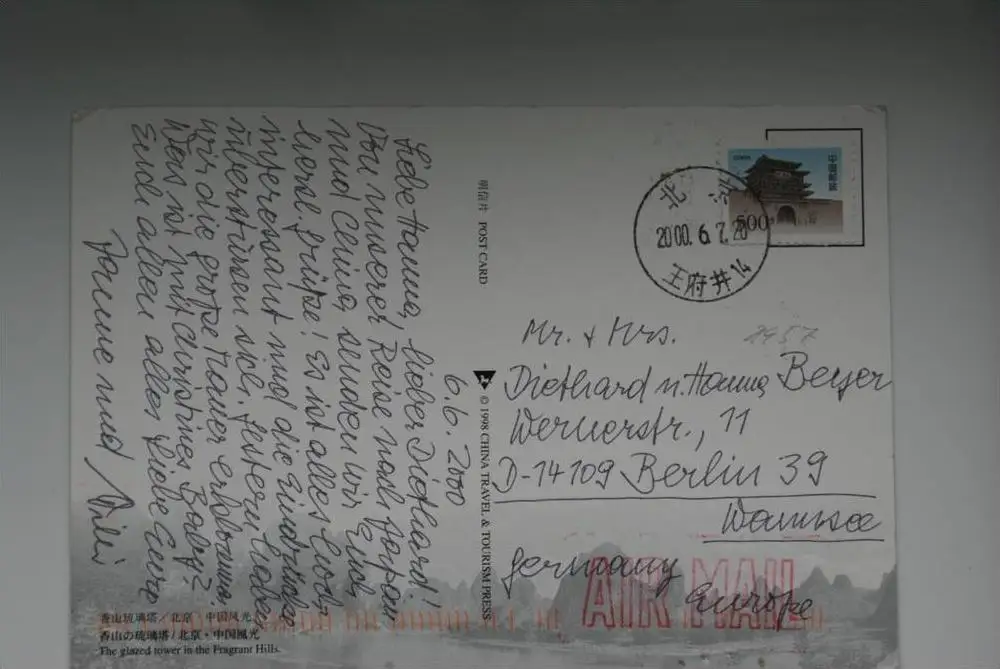 6.6.2000
Liebe Hanna, lieber Diethard!
Von unserer Reise nach Japan
und China senden wir Euch
herzl. Grüße! Es ist alles hoch-
interessant und die Eindrücke
überstürzen sich. Gestern haben
wir die große Mauer erklommen.
Was ist mit Christines Baby?
Euch allen alles Liebe Eure
und Willi
明信片 POST CARD
© 1998 CHINA TRAVEL & TOURISM PRESS
中国邮政
CHINA
500
北京
2000.6.7.20
王府井14
Mr. + Mrs.
Diethard u. Hanna Beyer
Wernerstr., 11
D-14109 Berlin 39
Wannsee
Germany
Europe
AIR MAIL
香山琉璃塔/北京·中国风光
香山の琉璃塔/北京·中国風光
The glazed tower in the Fragrant Hills.